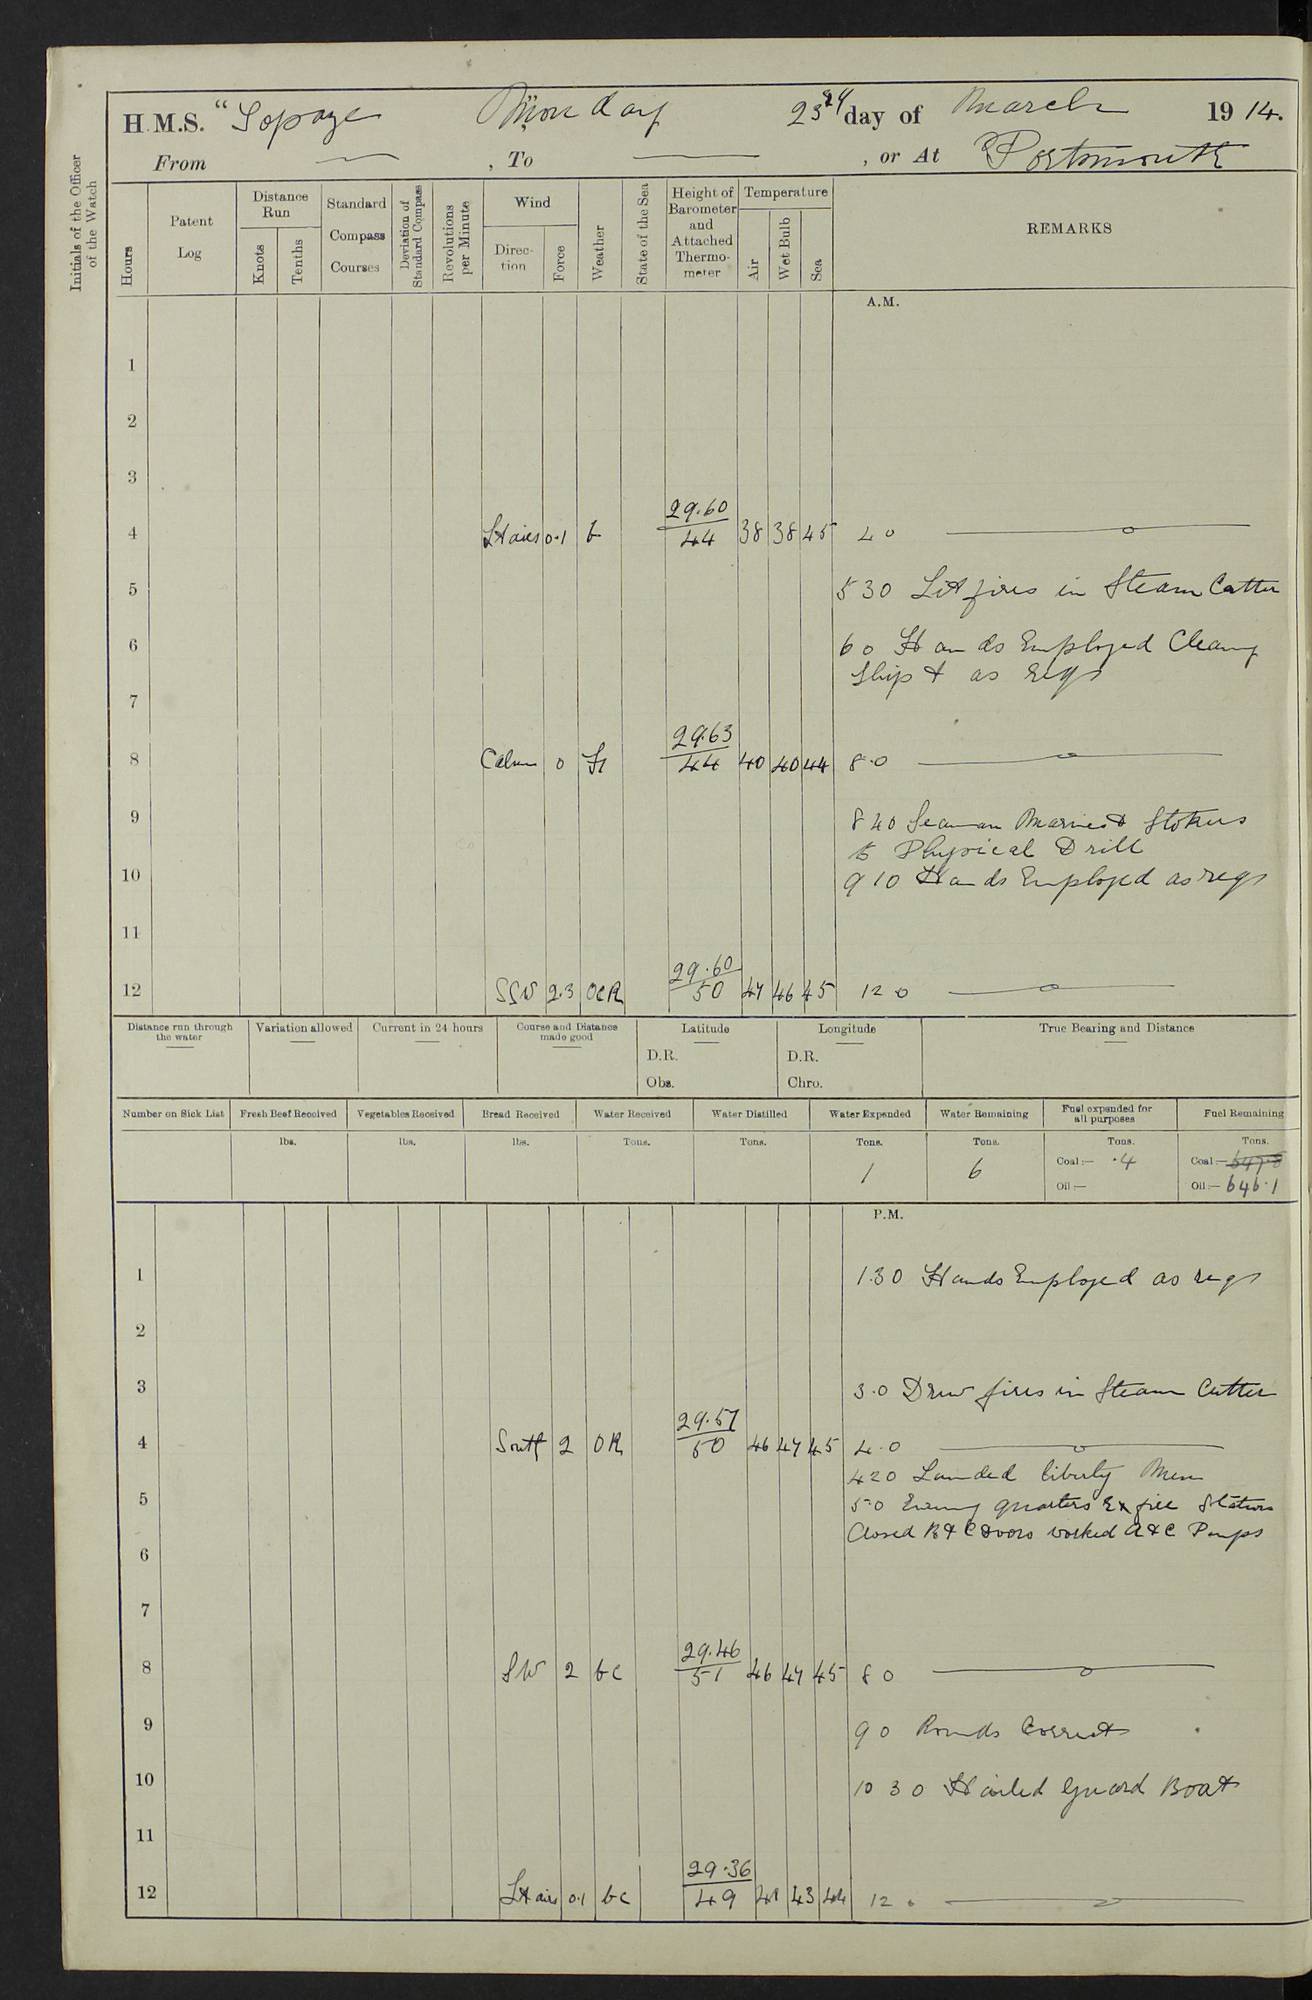 H.M.S. "Topaze Monday 23rd day of March 1914.
From — , To — , or At Portsmouth
Initials of the Officer of the Watch
Hours
Patent Log
Distance Run
Knots
Tenths
Standard Compass Courses
Deviation of Standard Compass
Revolutions per Minute
Wind
Direction
Force
Weather
State of the Sea
Height of Barometer and Attached Thermometer
Temperature
Air
Wet Bulb
Sea
REMARKS
A.M.
1
2
3
4 Lt airs 0.1 b 29.60 / 44 38 38 45 4 0
5 5 30 Lit fires in Steam Cutter
6 6 0 Hands Employed Cleang
Ship & as reqs
7
8 Calm 0 29.63 / 44 40 40 44 8.0
9 8 40 Seaman Marines & Stokers
to Physical Drill
10 9 10 Hands Employed as reqs
11
12 SSW 2.3 OCR 29.60 / 50 47 46 45 12 0
Distance run through the water
Variation allowed
Current in 24 hours
Course and Distance made good
Latitude
D.R.
Obs.
Longitude
D.R.
Chro.
True Bearing and Distance
Number on Sick List
Fresh Beef Received
Vegetables Received
Bread Received
Water Received
Water Distilled
Water Expended
Water Remaining
Fuel expended for all purposes
Fuel Remaining
lbs. lbs. lbs. Tons. Tons. Tons. Tons. Tons. Tons.
1 6 Coal:— .4 Coal:— 647.5
Oil:— Oil:— 646.1
P.M.
1 1.30 Hands Employed as reqs
2
3 3.0 Drew fires in Steam Cutter
4 South 2 OR 29.57 / 50 46 47 45 4.0
4 20 Landed liberty Men
5 5.0 Evening quarters Ex fire Stations
Closed B & C doors worked A & C Pumps
6
7
8 SW 2 bc 29.46 / 51 46 47 45 8 0
9 9 0 Rounds Correct
10 10 30 Hailed Guard Boat
11
12 Lt airs 0.1 bc 29.36 / 49 43 44 12